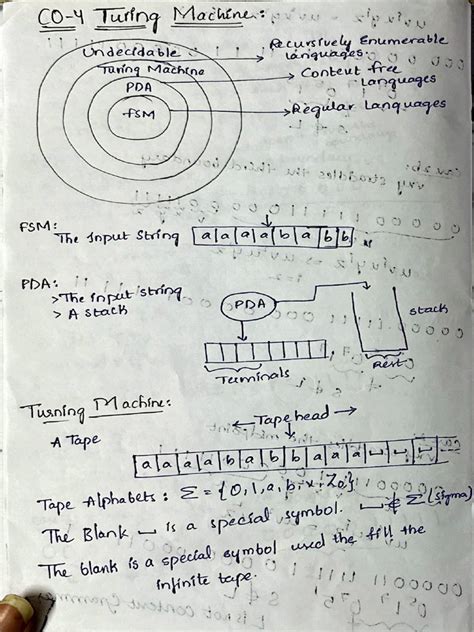 CO-4 Turing Machine:
Undecidable
Recursively Enumerable
languages
Turing Machine
Context free
Languages
PDA
Regular Languages
FSM
FSM:
The Input String a a a a b a b b
PDA:
> The input string
> A stack
PDA
stack
Terminals
Rest
Turning Machine:
← Tape head →
A Tape
a a a a b a b b a a a ⊔ ⊔ ⊔
Tape Alphabets: Σ = {0, 1, a, b, x, Z0}
The Blank ⊔ is a special symbol. ⊔ ∉ Σ (sigma)
The blank is a special symbol used the fill the
infinite tape.